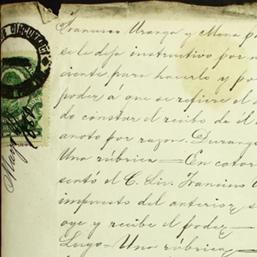 Francisco Uranga y Mena p
se le deja instructivo por n
ciente para hacerlo y po
poder, á que se refiere el
do constar el recibo de el
anoto por razon. Durang
Una rúbrica = En cator
sentó el C. Lic. Francisco
impuesto del anterior, s
oye y recibe el poder =
Lugo = Una rúbrica =